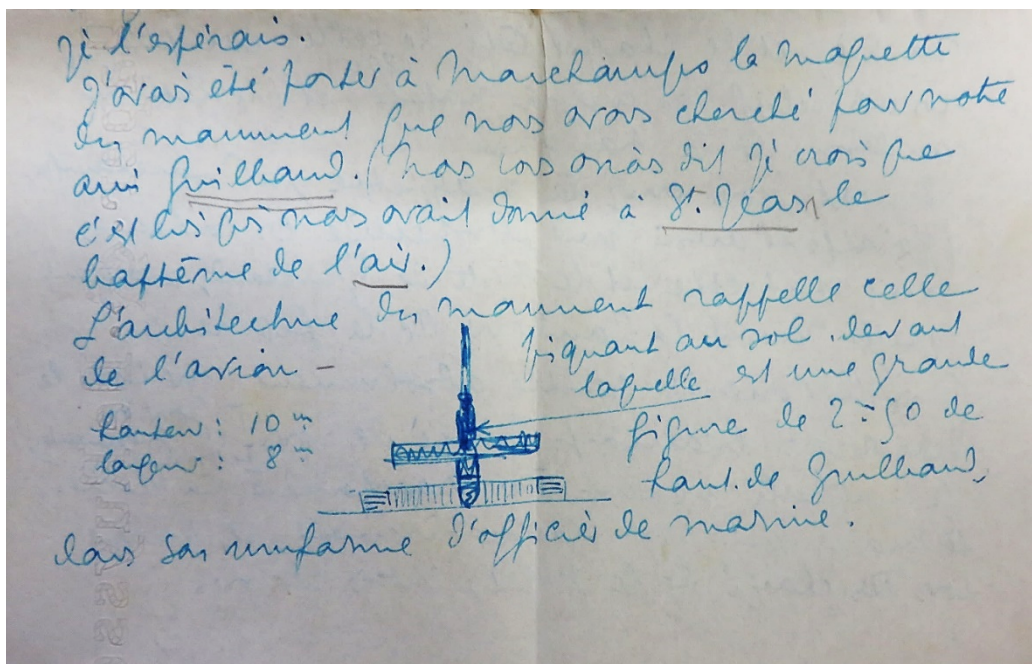 je l'espérais.
J'avais été porter à Marchamps la maquette
du monument que nous avons cherché pour notre
ami Guilbaud. (Nous vous avons dit je crois que
c'est lui qui nous avait donné à St. Jean le
baptême de l'air.)
L'architecture du monument rappelle celle
de l'avion – piquant au sol devant
laquelle est une grande
hauteur : 10 m figure de 2m50 de
largeur : 8 m haut. de Guilbaud,
dans son uniforme d'officier de marine.